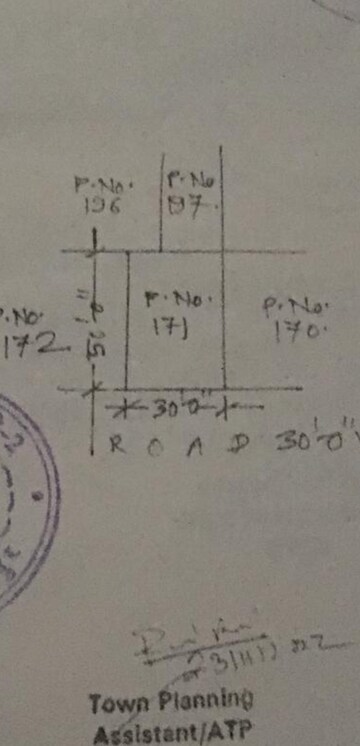 P.No.
196
P.No
197.
P.No.
171
P.No.
170.
P.No.
172
30'0"
ROAD 30'0"
Town Planning
Assistant/ATP